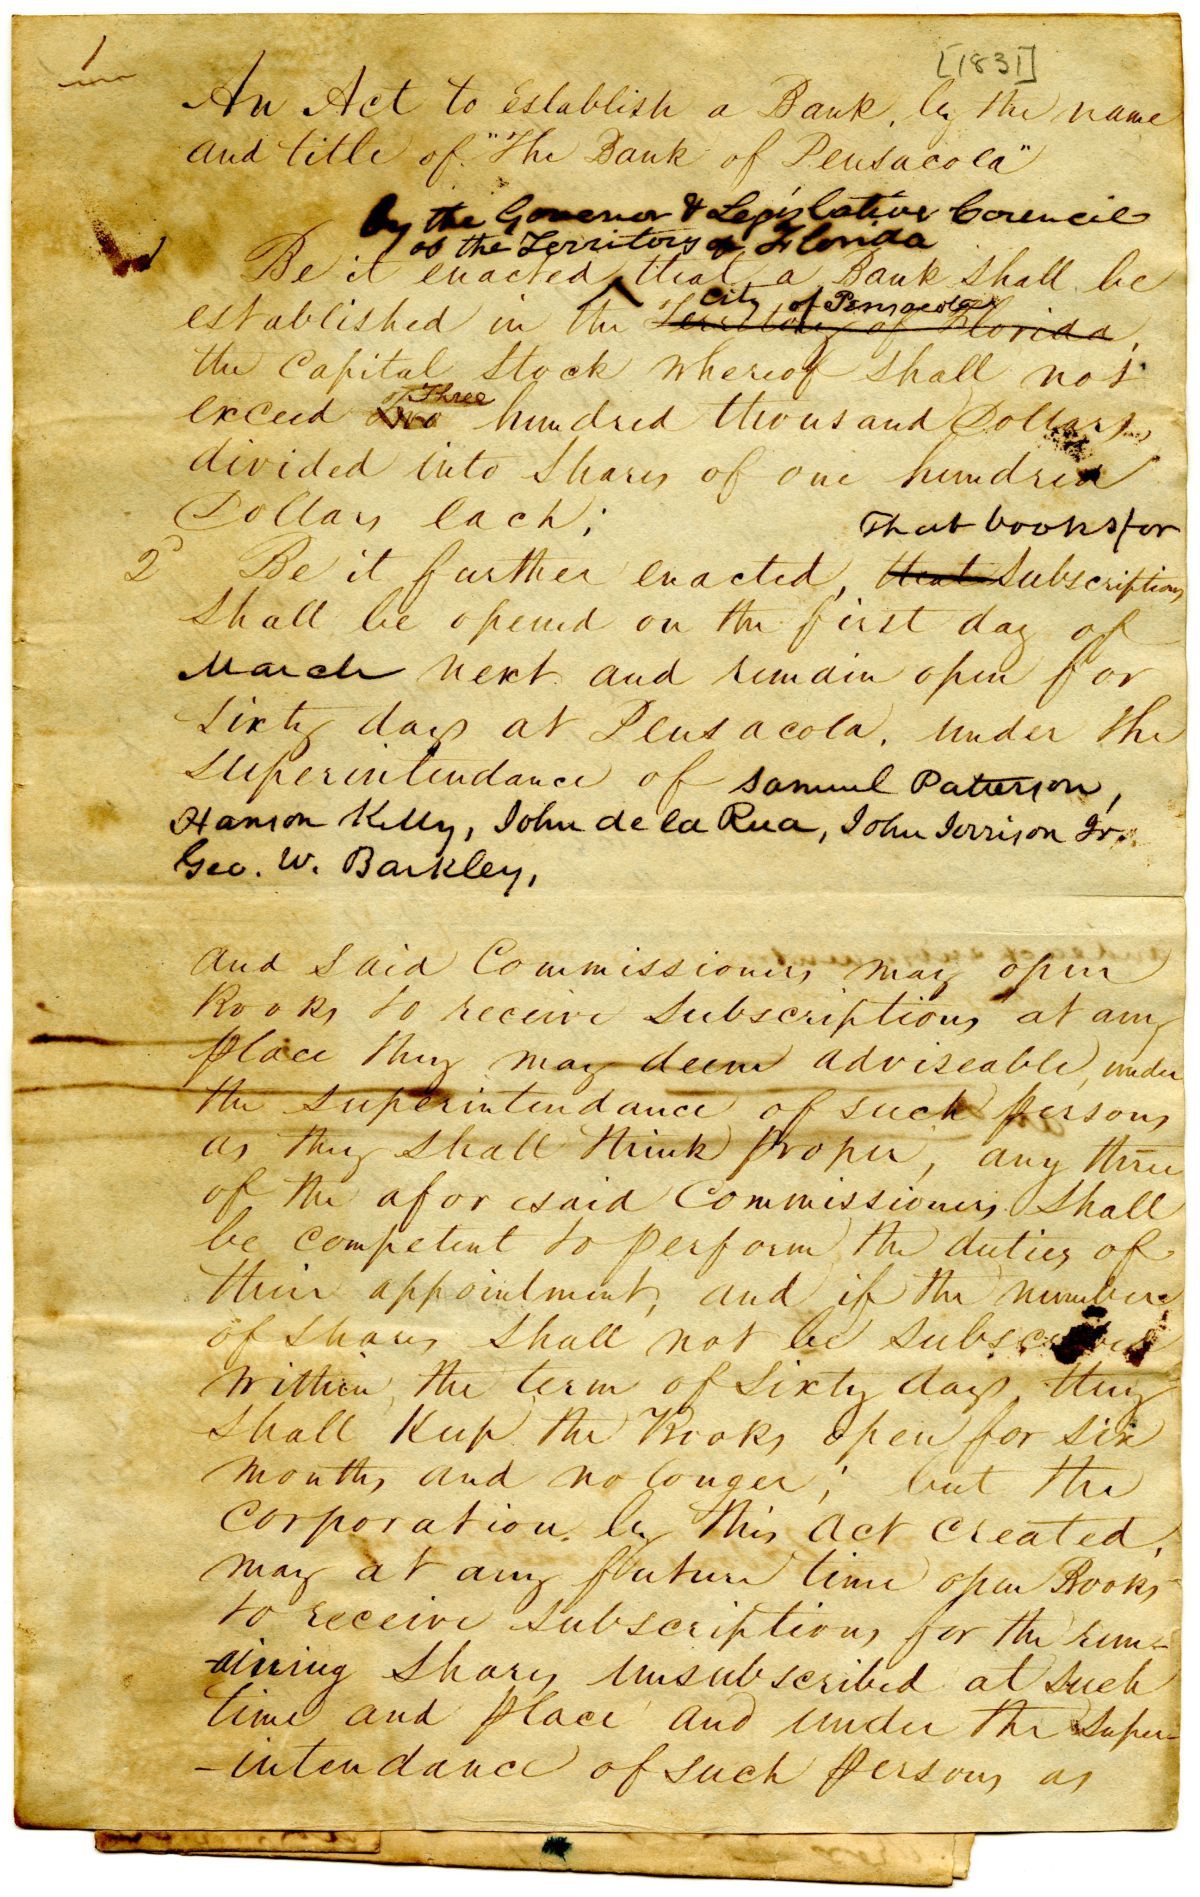 1
[1831]
An Act to Establish a Bank, by the name
and title of "The Bank of Pensacola"
by the Governor & Legislative Council
of the Territory of Florida
1 Be it enacted that a Bank shall be
City of Pensacola
established in the Territory of Florida,
the Capital Stock whereof shall not
of Three
exceed two hundred thousand Dollars
divided into Shares of one hundred
Dollars each;
That books for
2d Be it further enacted, that Subscriptions
shall be opened on the first day of
March next and remain open for
sixty days at Pensacola, under the
superintendance of Samuel Patterson,
Hanson Kelly, John de la Rua, John Jerrison Jr.
Geo. W. Barkley,
and said Commissioners may open
Books to receive subscriptions at any
place they may deem adviseable, under
the superintendance of such persons
as they shall think proper, any three
of the aforesaid Commissioners shall
be competent to perform the duties of
their appointment, and if the number
of shares shall not be subscribed
within the term of sixty days, they
shall keep the Books open for six
months and no longer; but the
Corporation by this act created,
may at any future time open Books
to receive subscriptions for the rem-
-aining shares unsubscribed at such
time and place and under the super-
-intendance of such persons as